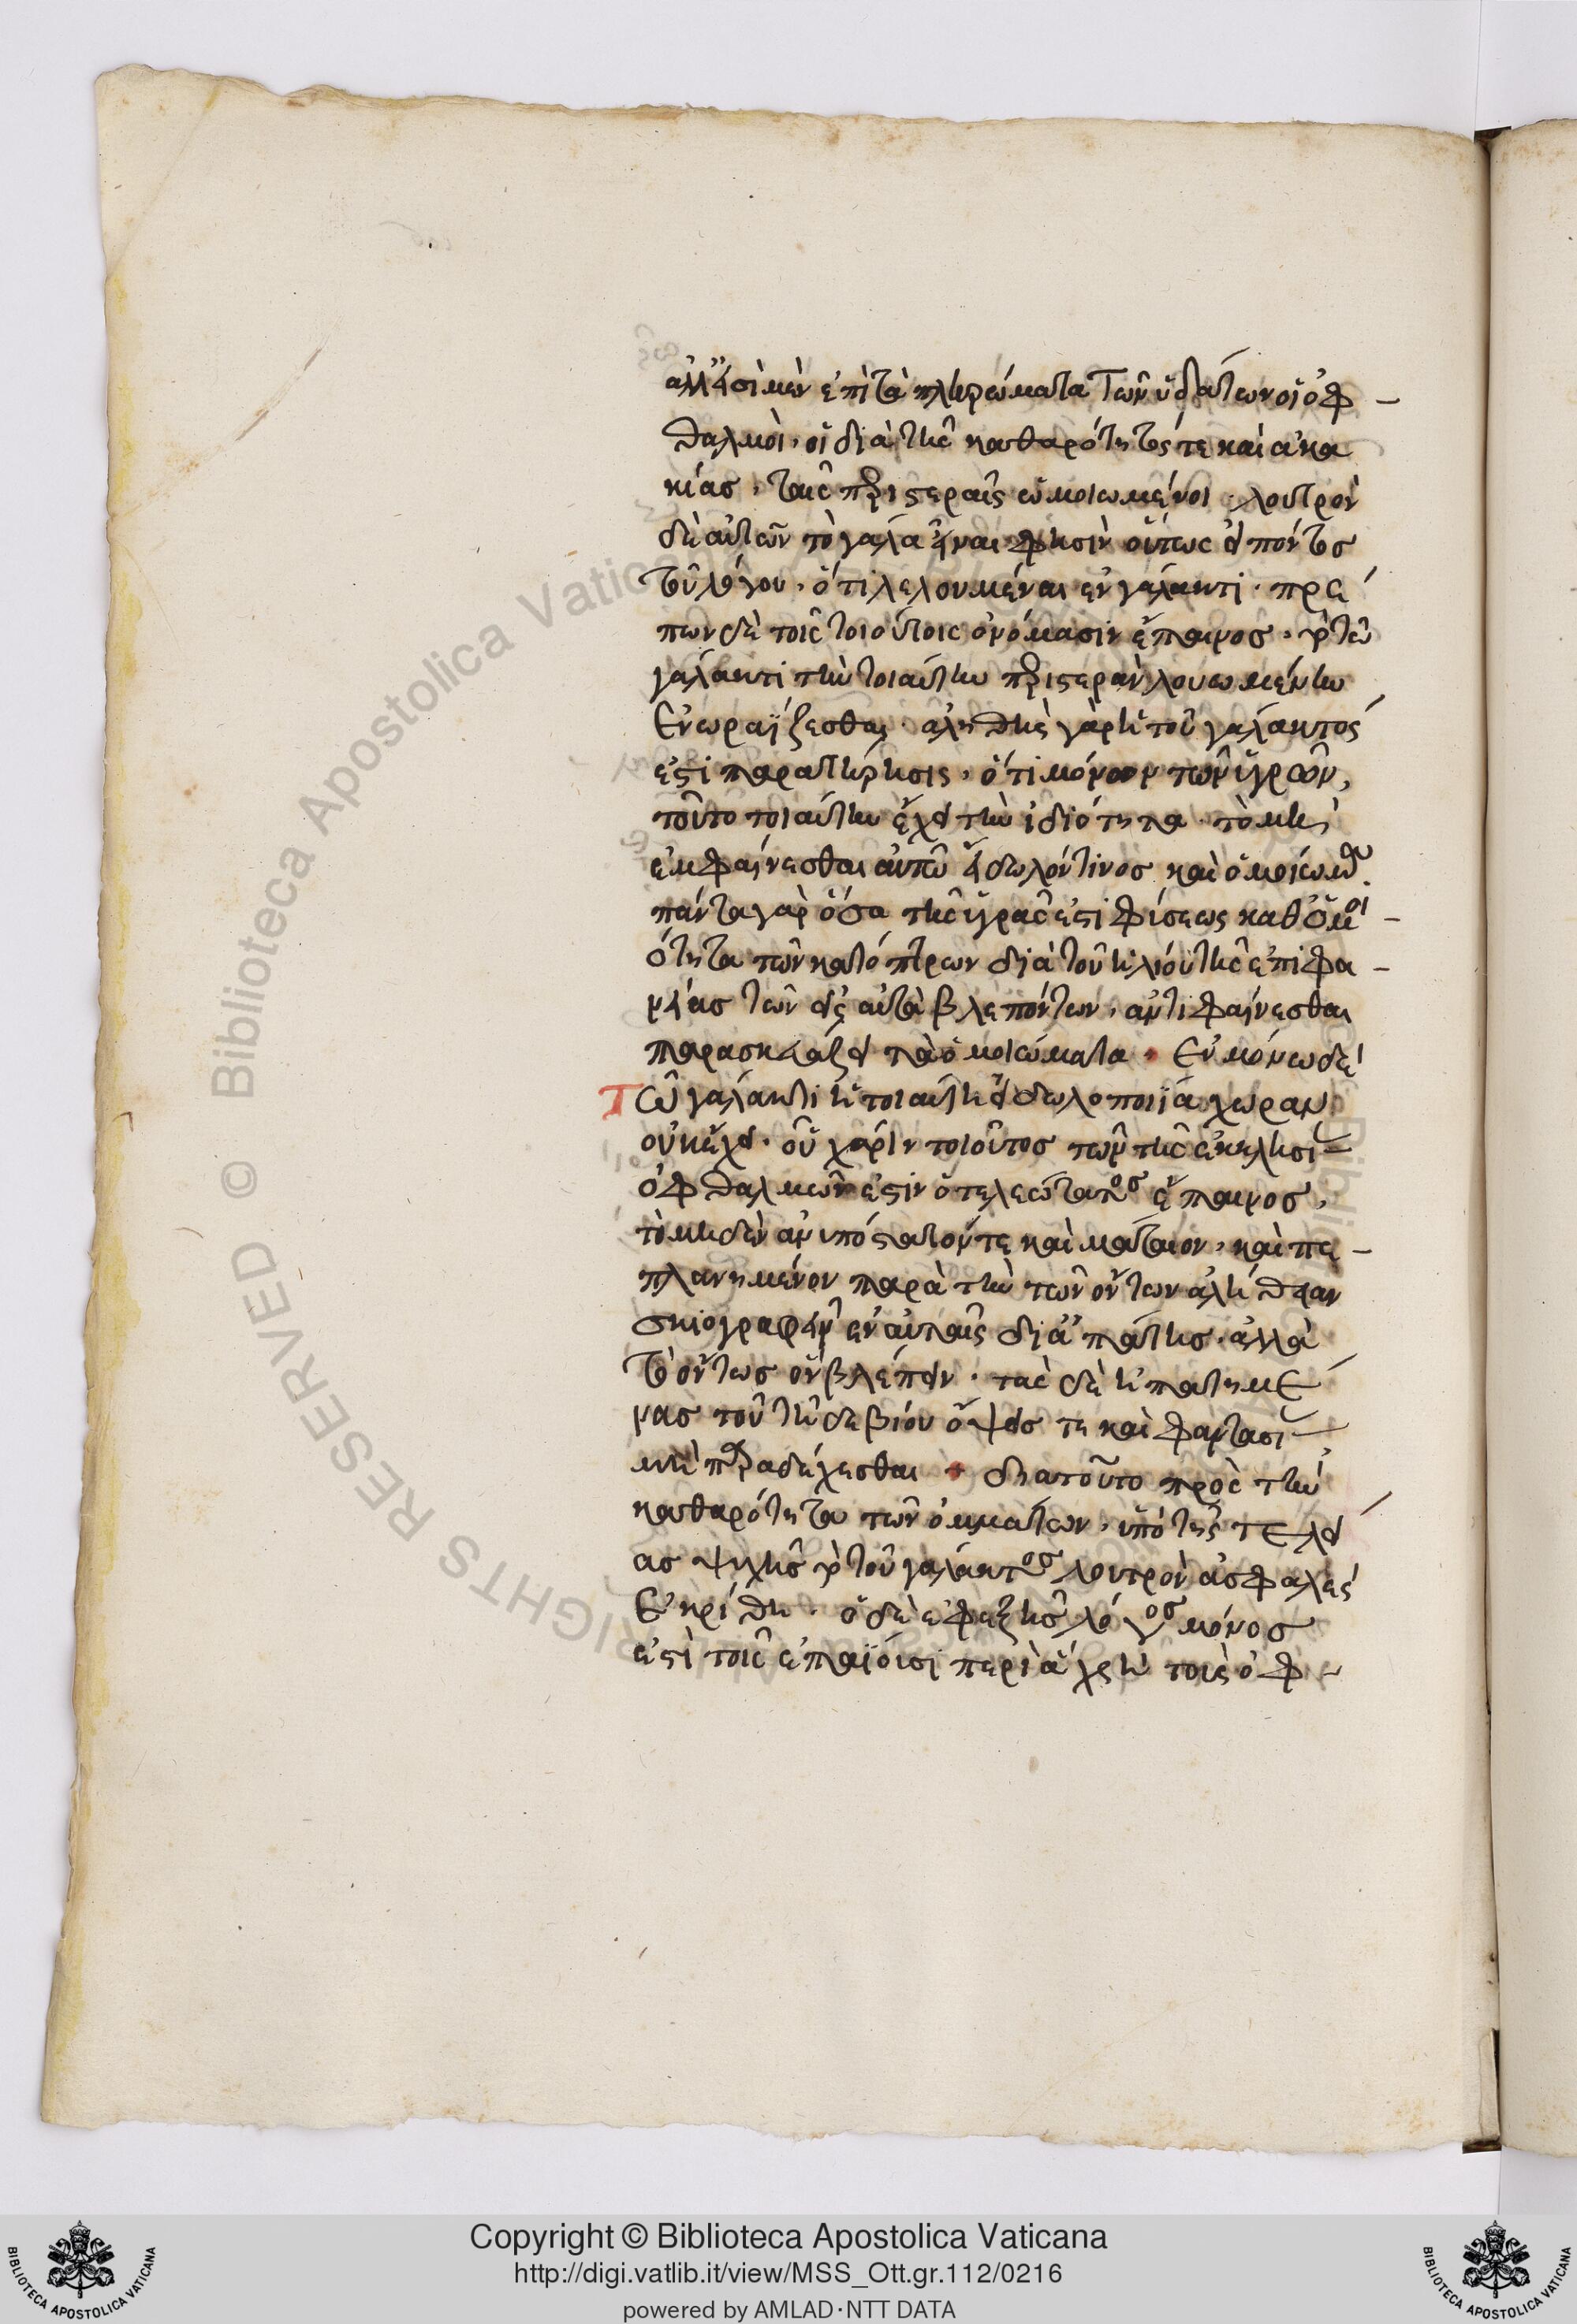 ἀλλ' εἰσὶ μὲν ἐπὶ τὰ πληρώματα τῶν ὑδάτων οἱ ὀφ -
θαλμοὶ, οἱ διὰ τῆς καθαρότητός τε καὶ ἀκα
κίας, ταῖς περιστεραῖς ὡμοιωμένοι. λουτρὸν
δὲ αὐτῶν τὸ γάλα εἶναι φησὶν οὕτως εἰπόντος
τοῦ λόγου, ὅτι λελουμέναι ἐν γάλακτι. πρέ
πων δὲ τοῖς τοιούτοις ὀνόμασιν ἔπαινος, τῷ
γάλακτι τὴν τοιαύτην περιστερὰν λουωμένην
ἐνωραΐζεσθαι. ἀληθὴς γὰρ ἡ τοῦ γάλακτός
ἐστι παρατήρησις, ὅτι μόνον τῶν ὑγρῶν,
τοῦτο τοιαύτην ἔχει τὴν ἰδιότητα. τὸ μὴ
ἐμφαίνεσθαι αὐτῷ εἴδωλόν τινος καὶ ὁμοίωμα.
πάντα γὰρ ὅσα τῆς ὑγρᾶς ἐστι φύσεως καθ' ὁμοι -
ότητα τῶν κατόπτρων διὰ τοῦ ἡλίου τῆς ἐπιφα -
νείας τῶν εἰς αὐτὰ βλεπόντων, ἀντιφαίνεσθαι
παρασκευάζει τὰ ὁμοιώματα · ἐν μόνω δὲ
Τῶ γάλακτι ἡ τοιαύτη εἰδωλοποιΐα χώραν
οὐκ ἔχει. οὗ χάριν τοιοῦτος τῶν τῆς ἐκκλησίας
ὀφθαλμῶν ἐστιν ὁ τελεώτατος ἔπαινος,
τὸ μηδὲν ἀνυπόστατόν τε καὶ μάταιον, καὶ πε -
πλανημένον παρὰ τὴν τῶν ὄντων ἀλήθειαν
σκιογραφεῖν ἐν αὐταῖς δι' ἀπάτης. ἀλλὰ
τὸ ὄντως ὂν βλέπειν. τὰς δὲ ἠπατημέ
νας τοῦ τῇδε βίου ὄψεις τε καὶ φαντασίας
μὴ παραδέχεσθαι · διατοῦτο πρὸς τὴν
καθαρότητα τῶν ὀμμάτων, ὑπὸ τῆς τελεί
ας ψυχῆς τὸ τοῦ γάλακτος λουτρὸν ἀσφαλὲς
ἐκρίθη. ὁ δὲ ἐφεξῆς λόγος μόνος
ἐστὶ τοῖς ἐπαΐουσι περὶ ἃ χρὴ τοὺς ὀφ -
Copyright © Biblioteca Apostolica Vaticana
http://digi.vatlib.it/view/MSS_Ott.gr.112/0216
powered by AMLAD·NTT DATA